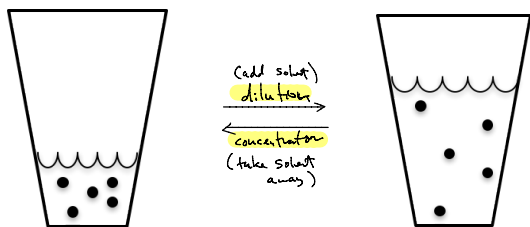 (add solvent)
dilution
concentration
(take solvent
away)